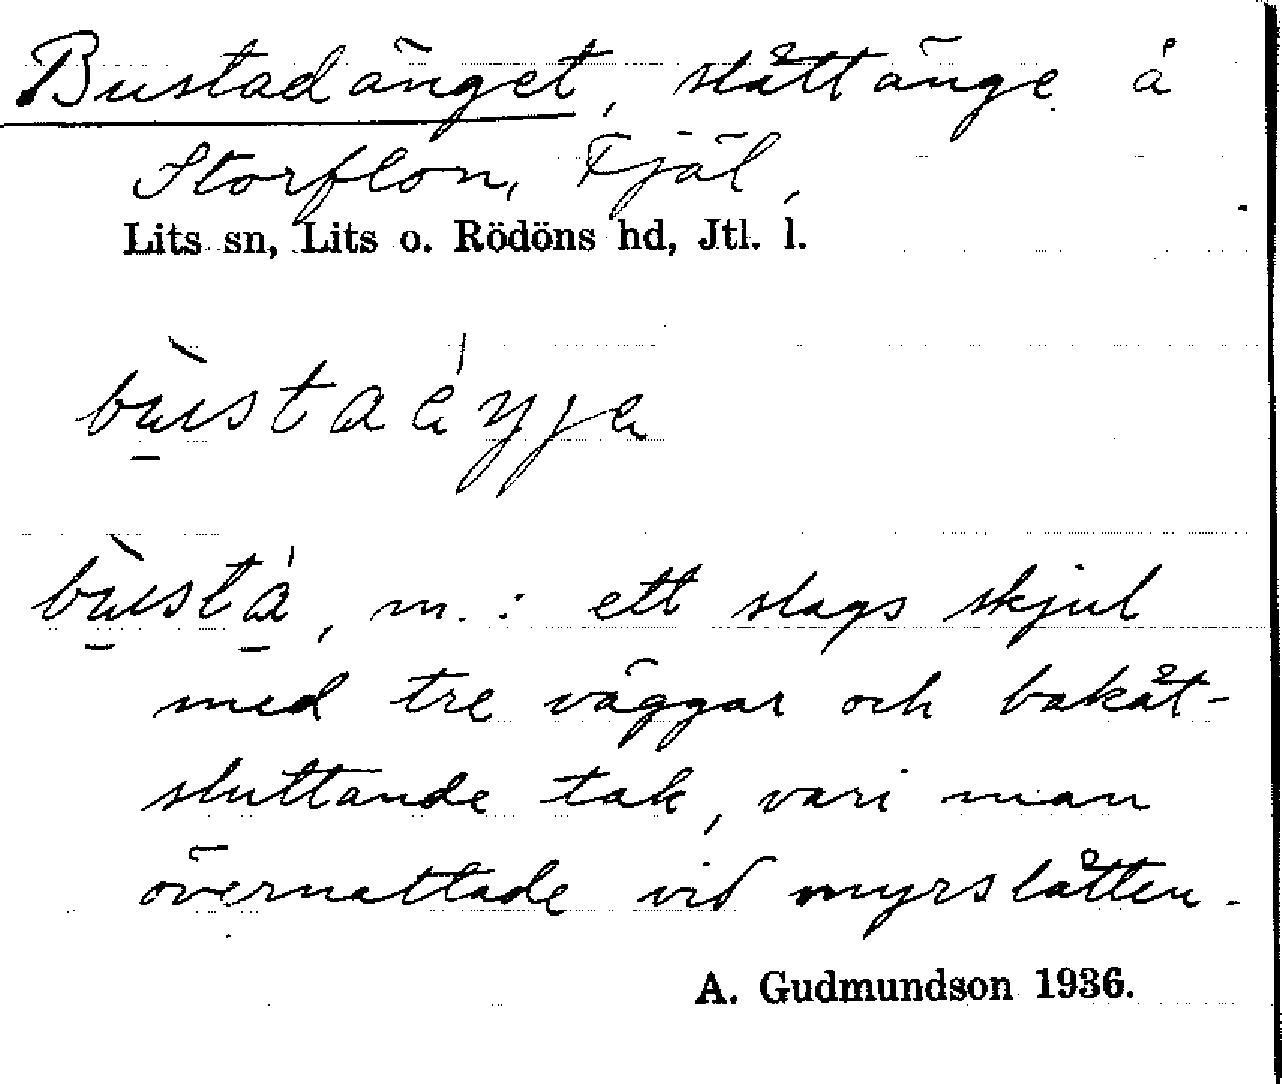 Bustadänget, slåttänge å
Storflon, Fjäl,
Lits sn, Lits o. Rödöns hd, Jtl. l.
bùstaáŋja
bùstá, m.: ett slags skjul
med tre väggar och bakåt-
sluttande tak, vari man
övernattade vid myrslåtten.
A. Gudmundson 1936.